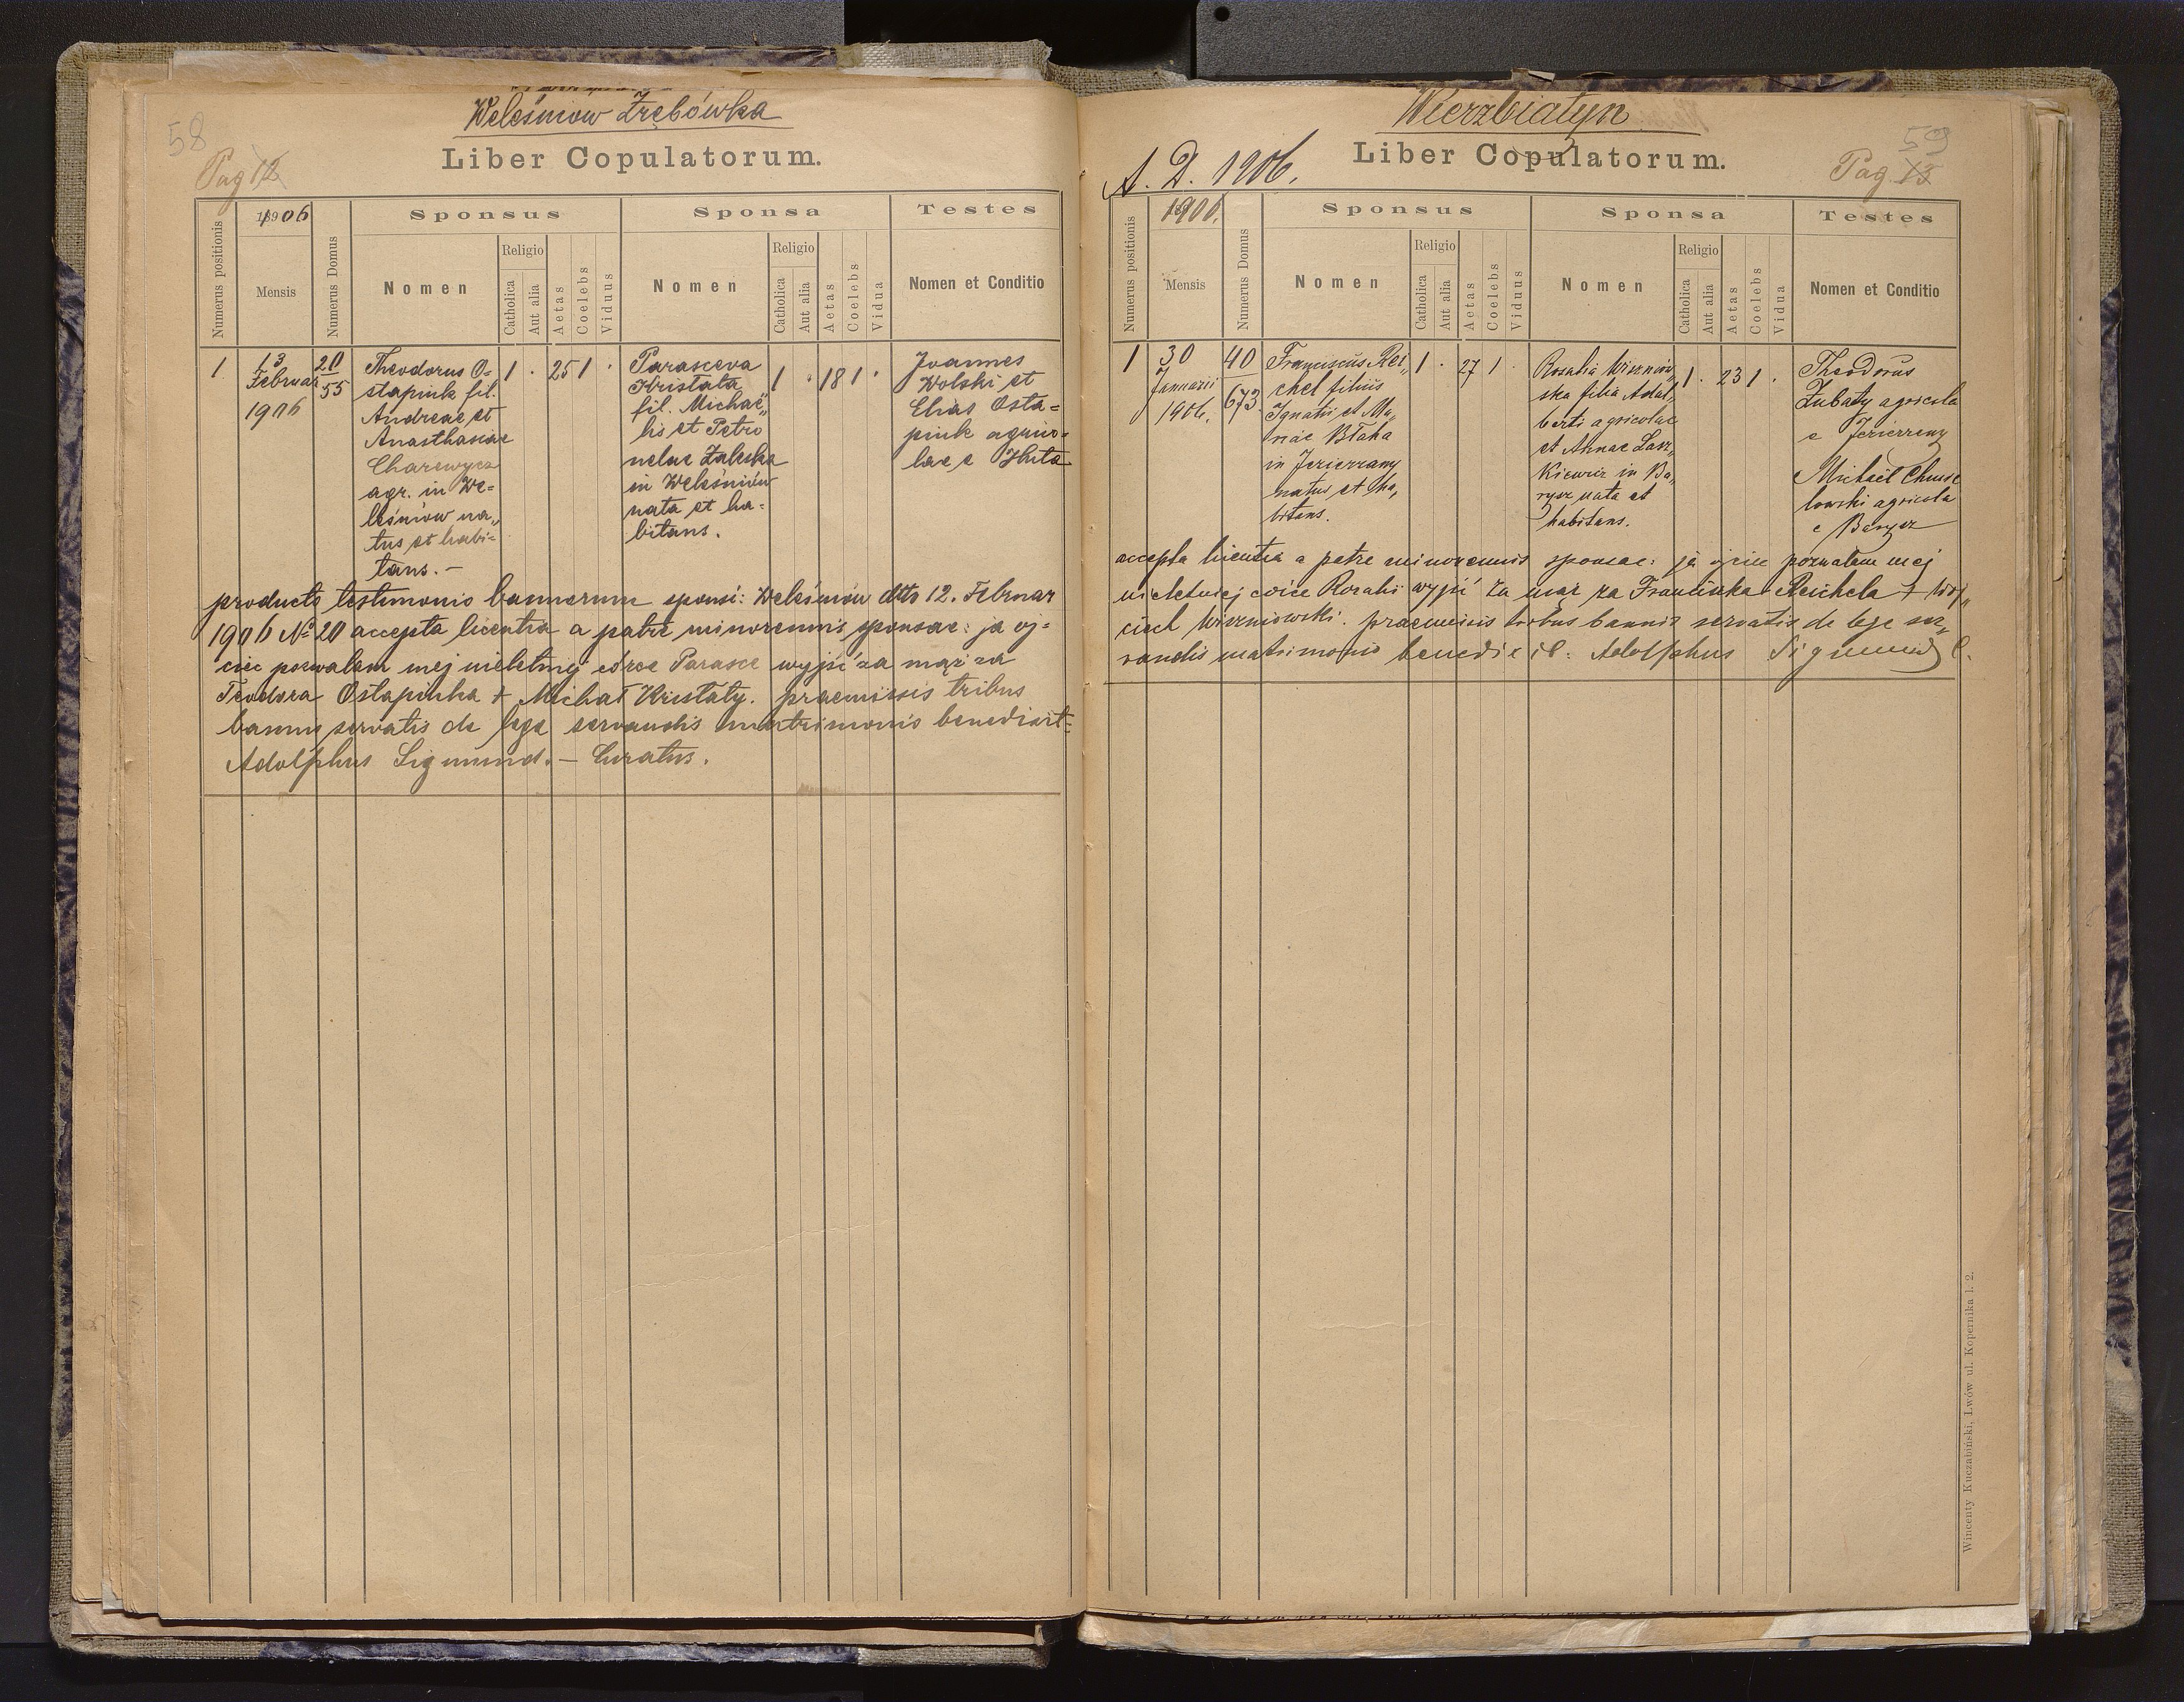 58
Weleśniow Zrębówka
Liber Copulatorum.
Pag 12
Numerus positionis
1906
Mensis
Numerus Domus
Sponsus
Nomen
Religio
Catholica
Aut alia
Aetas
Coelebs
Viduus
Sponsa
Nomen
Religio
Catholica
Aut alia
Aetas
Coelebs
Vidua
Testes
Nomen et Conditio
1
13
Februar
1906
20
55
Theodorus O=
stapiuk fil.
Andreae et
Anasthasiae
Charewycz
agr. in We=
leśniow na„
tus et habi=
tans. —
1 . 25 1 .
Parasceva
Kristata
fil. Michaë„
lis et Petro
nelae Zaleska
in Weleśniów
nata et ha=
bitans.
1 . 18 1 .
Joannes
Wolski et
Elias Osta=
piuk agrico=
lae e Huta
producto testimonio bannorum sponsi: Weleśniów dtto 12. Februar
1906 № 20 accepta licentia a patre minorennis sponsae: ja oj=
ciec pozwalam mej nieletniej córce Parasce wyjść za mąż za
Teodora Ostapiuka + Michał Kristaty. praemissis tribus
bannis servatis de lege servandis matrimonio benedixit=
Adolphus Sigmund. — Curatus.
Wierzbiatyn
59
A. D. 1906.
Liber Copulatorum.
Pag. 13
Numerus positionis
1906.
Mensis
Numerus Domus
Sponsus
Nomen
Religio
Catholica
Aut alia
Aetas
Coelebs
Viduus
Sponsa
Nomen
Religio
Catholica
Aut alia
Aetas
Coelebs
Vidua
Testes
Nomen et Conditio
1
30
Januarii
1906.
40
673
Franciscus Rei„
chel filius
Ignatii et Ma„
riae Błaha
in Jezierzany
natus et ha„
bitans.
1 . 27 1 .
Rosalia Wiszniow„
ska filia Adal„
berti agricolae
et Annae Lasz„
kiewicz in Ba„
rysz nata et
habitans.
1 . 23 1 .
Theodorus
Zubaty agricola
e Jezierzany
Michaël
agricola
e Barysz
accepta licentia a patre minorennis sponsae: ja ojciec pozwalam mej
nieletniej córce Rozalii wyjść za mąż za Franciszka Reichela + Woj„
ciech Wiszniowski. praemissis tribus bannis servatis de lege ser„
vandis matrimonio benedixit: Adolphus Sigmund C.
Wincenty Kuczabiński, Lwów ul. Kopernika l. 2.